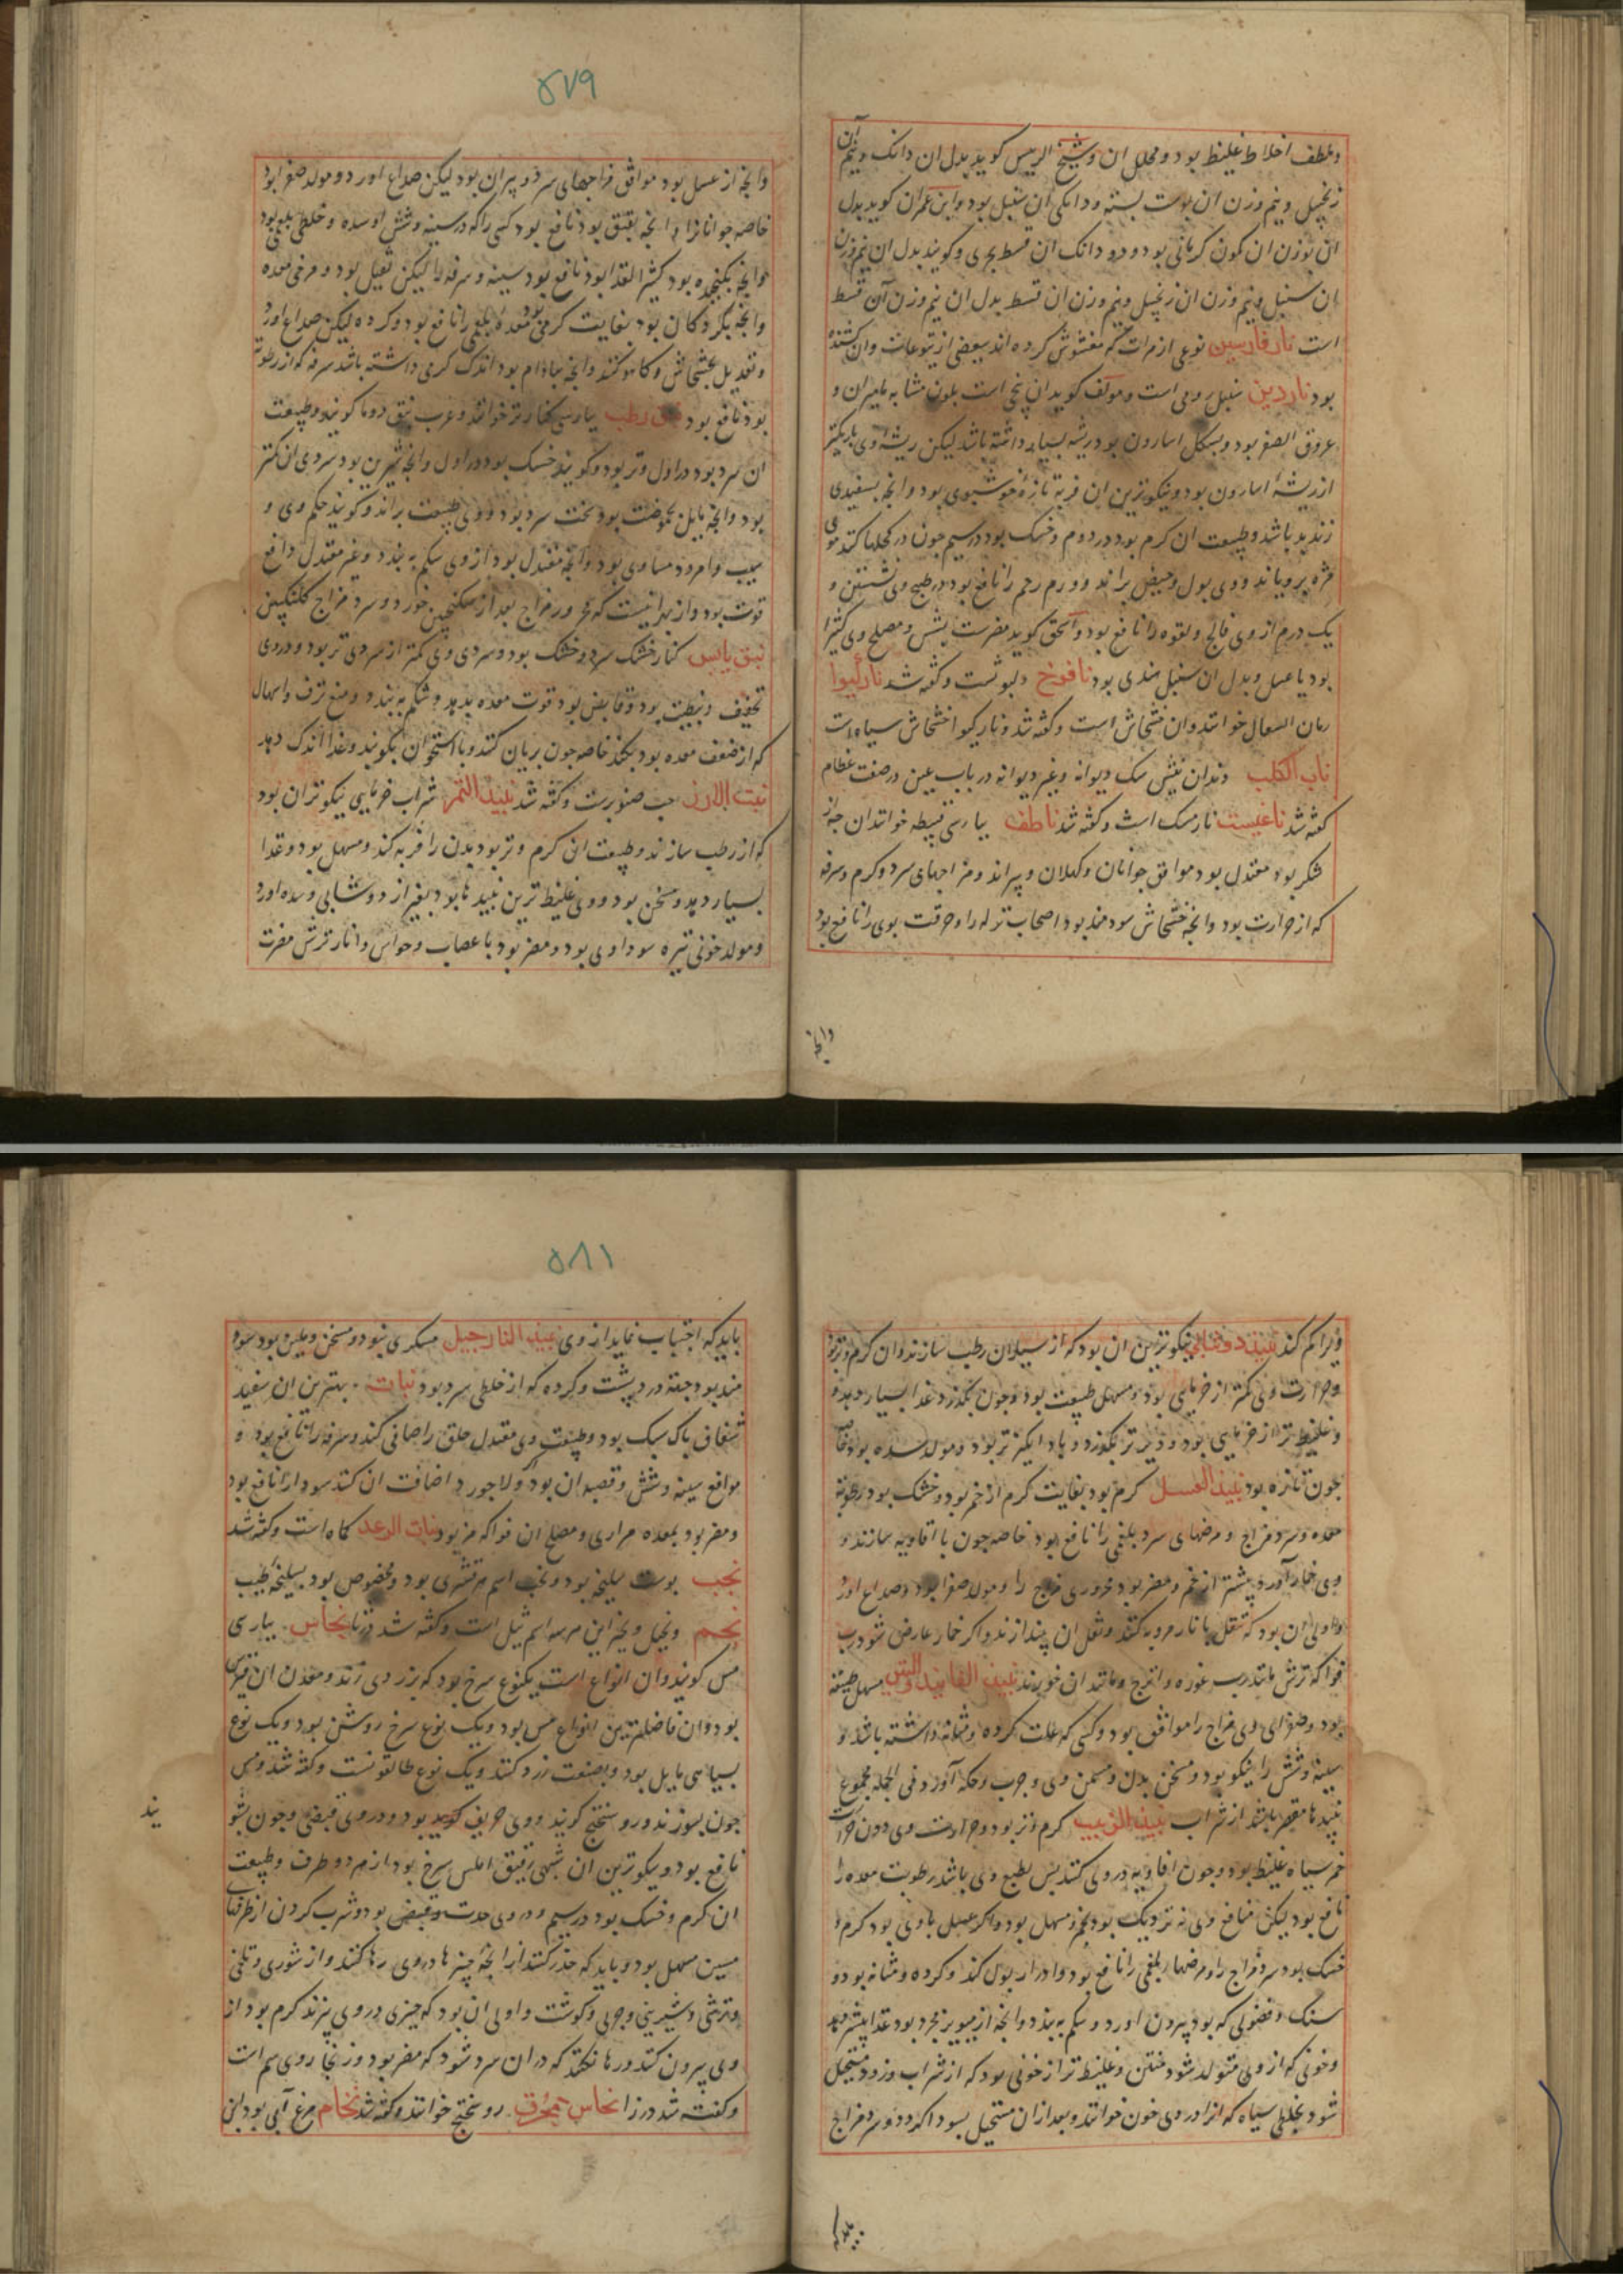 وملطف اخلاط غلیظ بود ومحلل ان وشیخ الرییس کوید بدل ان دانک ونیم آن
زنجبیل ونیم وزن ان پوست بسته ودانکی ان سنبل بود وابن عمران کوید بدل
ان بوزن ان کمون کرمانی بود ودو دانک ان قسط بحری وکویند بدل ان نیم وزن
ان سنبل ونیم وزن ان زنجبیل ونیم وزن ان قسط بدل ان نیم وزن آن قسط
است نارفارسین نوعی ازمرات که مغشوش کرده اند ببعضی ازیتوعات وان کشنده
بود ناردین سنبل رومی است ومولف کوید ان بیخی است بلون مشابه مامیران و
عروق الصفر بود وبشکل اسارون بود وریشه بسیار داشته باشد لیکن ریشه وی باریکتر
ازریشه اسارون بود ونیکوترین ان فربه تازه خوشبوی بود وانجه بسفیدی
زند بد باشد وطبیعت ان کرم بود در دوم وخشک بود درسیم جون در کحلها کنند موی
مژه برویاند ووی بول وحیض براند وورم رحم را نافع بود در طبیخ وی نشستن و
یک درم از وی فالج ولقوه را نافع بود واسحق کوید مضرست بشش ومصلح وی کثیرا
بود یا عسل وبدل ان سنبل هندی بود نافوخ دلبوثست وکفته شد نارکیوا
رمان السعال خوانند وان خشخاش است وکفته شد ونارکیوا خشخاش سیاه است
ناب الکلب دندان نیش سک دیوانه وغیر دیوانه در باب عین درصفت عظام
کفته شد ناغیست نارمشک است وکفته شد ناطف بپارسی قبیطه خوانند ان جه از
شکر بود معتدل بود موافق جوانان وکهلان وپیراند ومزاجهای سرد وکرم وسرفه
که از حرارت بود وانجه خشخاش سودمند بود اصحاب نزله را وحرقت بوی را نافع بود
وانجه
۵۷۹
وانجه از عسل بود موافق مزاجهای سرد وپیران بود لیکن صداع اورد ومولد صفرا بود
خاصه جوانانرا وانجه بقیق بود نافع بود کسی را که درسینه وشش او سده وخلطی بلغمی بود
وانجه بکنجده بود کثیر الغذا بود نافع بود سینه وسرفه را لیکن ثقیل بود ومرخی معده
وانجه بکردکان بود بغایت کرمی بود معده بلغمی را نافع بود وکرده لیکن صداع اورد
وتعدیل بخشخاش وکاهو کنند وانجه بباذام بود اندک کرمی داشته باشد سرفه که از رطوبة
بود نافع بود نبق رطب بپارسی کنار تر خوانند وعرب نبق دوما کویند وطبیعت
ان سرد بود در اول وتر بود وکویند خشک بود در اول وانجه شیرین بود سردی ان کمتر
بود وانجه مایل بحموضت بود سخت سرد بود ووی طبیعت براند وکویند حکم وی و
سیب وامرود مساوی بود وانجه معتدل بود از وی شکم به بندد وغیر معتدل دافع
قوت بود واز بهر انیست که محرور مزاج بعد از سکنجبین خورد وسرد مزاج کلنکبین
نبق یابس کنار خشک سرد وخشک بود وسردی وی کمتر از سردی تر بود ودروی
تجفیف وتثبیت بود وقابض بود قوت معده بدهد وشکم به بندد ومنع نزف واسهال
که از ضعف معده بود بکند خاصه جون بریان کنند وبا استخوان بکوبند وغذا اندک دهد
نبت الارز حب صنوبرست وکفته شد نبیذ التمر شراب خرمایی نیکوتر ان بود
که از رطب سازند وطبیعت ان کرم وتر بود بدن را فربه کند ومسهل بود وغذا
بسیار دهد ومسخن بود ووی غلیظ ترین نبیدها بود بغیر از دوشابی وسده اورد
ومولد خونی تیره سوداوی بود ومضر بود باعصاب وحواس وانار ترش مضرت
ویرا کم کند نبیذ دوشابی نیکوترین ان بود که از سیلان رطب سازند وان کرم وتر بود
وحرارت وی کمتر از خرمایی بود ومسهل طبیعت بود وجون بکذرد غذا بسیار دهد و
وغلیظ تر از خرمایی بود ودیرتر بکذرد وباد انکیزتر بود ومولد سده بود خاصه
جون تازه بود نبیذ العسل کرم بود بغایت کرم تر از خمر بود وخشک بود رطوبة
معده وسرد مزاج ومرضهای سرد بلغمی را نافع بود خاصه جون با افاویه سازند و
وی خمار آورد بیشتر از خمر ومضر بود محروری مزاج را ومولد صفرا بود وصداع اورد
واولی ان بود که تنقل بانار مزه کنند وثقل ان بیندازند واکر خمار عارض شود رب
فواکه ترش مانند رب غوره واترج ومانند ان خورند نبیذ الفانید والتین مسهل طبیعة
بود وصفرای وی مزاج را موافق بود وکسی که علت کرده ومثانه داشته باشد و
سینه وشش را نیکو بود ومسخن بدن ومسمن وی وجرب وحکه آورد فی الجمله مجموع
نبیدها مقصر باشد از شراب نبیذ الزبیب کرم وتر بود وحرارت وی دون حرارت
خمر سیاه غلیظ بود وجون افاویه دروی کنند پس بطبع وی باشد رطوبت معده را
نافع بود لیکن منافع وی نه نزدیک بود بخمر ومسهل بود واکر عسل باوی بود کرم و
خشک بود سرد مزاج را ومرضهای بلغمی را نافع بود وادرار بول کند وکرده ومثانه بود و
سنک وفضولی که بود بیرون اورد وشکم به بندد وانجه از مویز مجرد بود غذا بیشتر دهد
وخونی که از وی متولد شود متین وغلیظ تر از خونی بود که از شراب وزود مستحیل
شود بخلطی سیاه که انرا دروی خون خوانند وبعد ازان مستحیل بسودا کردد وسرد مزاج
۵۸۱
باید که اجتناب نماید از وی نبیذ النارجیل مسکری بود ومسخن وملین بود سود
مند بود جهة درد پشت وکرده که از خلطی سرد بود نبات بهترین ان سفید
شفاف پاک سبک بود وطبیعت وی معتدل حلق را صافی کند وسرفه را نافع بود و
موافع سینه وشش وقصبه ان بود ولاجورد اضافت ان کنند سودا را نافع بود
ومضر بود بمعده مراری ومصلح ان فواکه مز بود نبات الرعد کماه است وکفته شد
نجب پوست سلیخه بود ونجب اسم هر قشری بود ومخصوص بود بسلیخه اطیب
نجم ونجیل ونجر این هر سه اسم ثیل است وکفته شد در ثا نحاس بپارسی
مس کویند وان انواع است یکنوع سرخ بود که بزردی زند ومعدن ان قبرس
بود وان فاضلترین انواع مس بود ویک نوع سرخ روشن بود ویک نوع
بسیاهی مایل بود وبصنعت زرد کنند ویک نوع طالقونست وکفته شد ومس
جون بسوزند روسختج کویند ووی حریف بود ودروی قبضی وجون بشو
یند
نافع بود ونیکوترین ان شبهی رقیق املس سرخ بود از هر دو طرف وطبیعت
ان کرم وخشک بود درسیم ودروی حدت وقبض بود وشرب کردن از ظرفهای
مسین مسهل بود وباید که حذر کنند از انجه چیزها دروی رها کنند واز شوری وتلخی
وترشی وشیرینی وجربی وکوشت واولی ان بود که چیزی دروی پزند کرم بود از
وی بیرون کنند ورها نکنند که دران سرد شود که مضر بود وزنجار وی سم است
وکفته شد در زا نحاس محرق روسختج خوانند وکفته شد نحام مرغ آبی بود